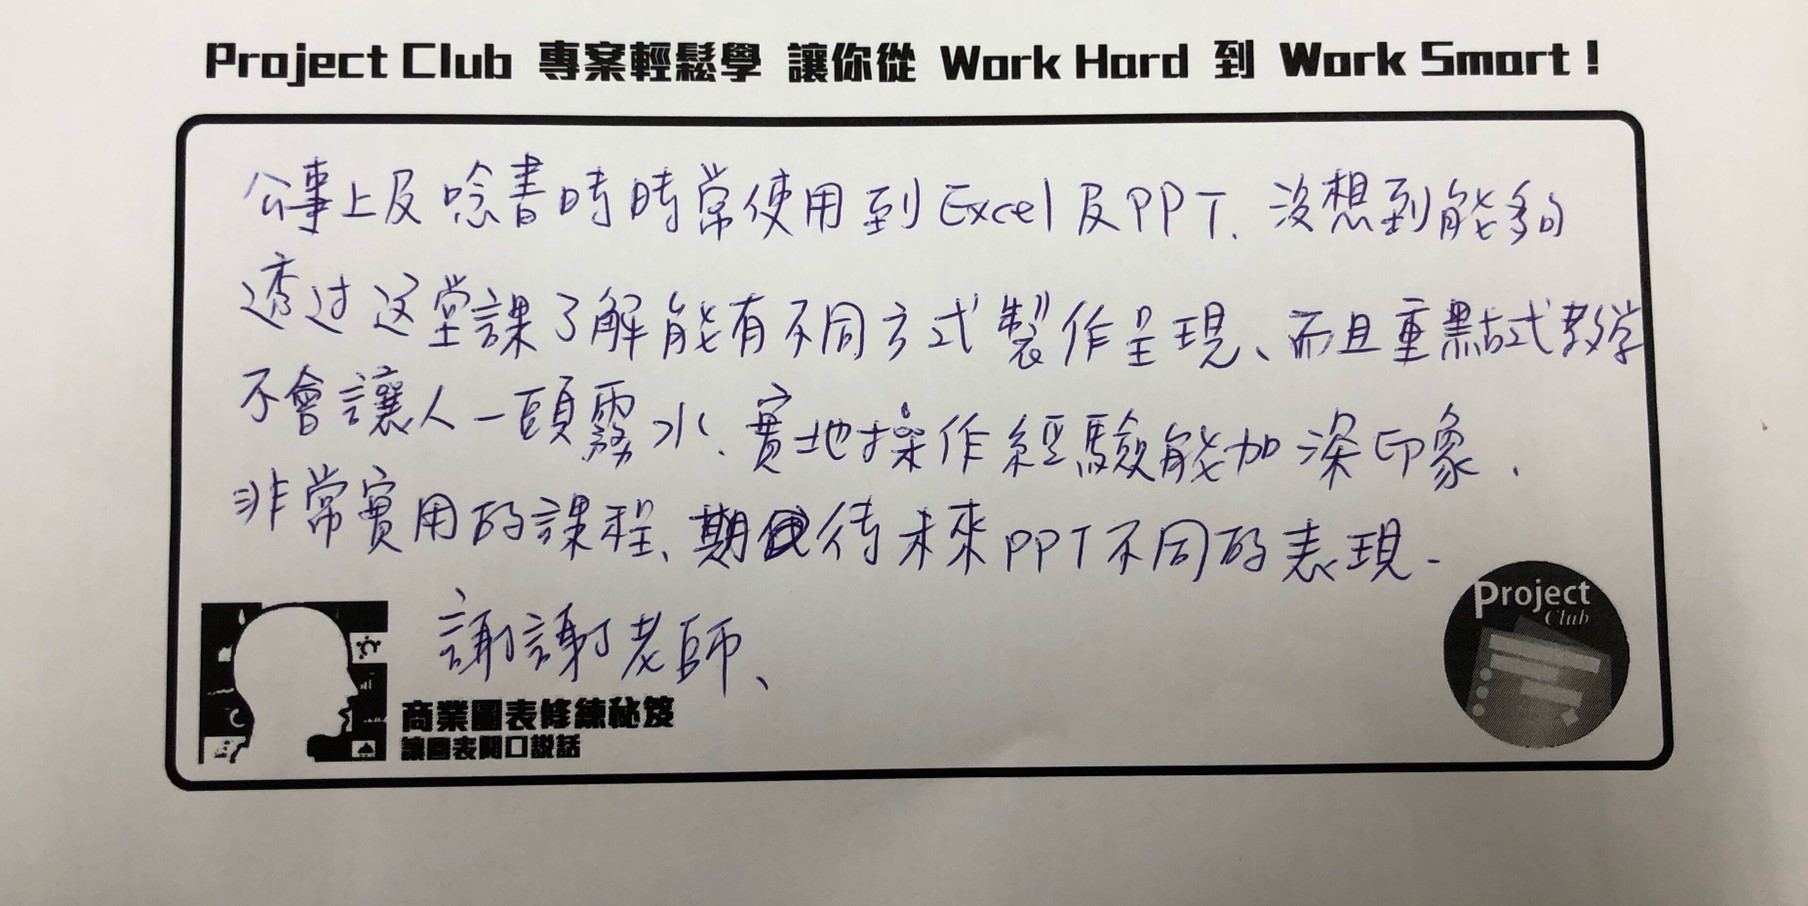 Project Club 專案輕鬆學 讓你從 Work Hard 到 Work Smart！
公事上及唸書時時常使用到 Excel 及 PPT. 沒想到能夠
透过这堂課了解能有不同方式製作呈現、而且重點式教学
不會讓人一頭霧水、實地操作經驗能加深印象.
非常實用的課程、期待未來PPT不同的表現-
謝謝老師、
商業圖表修練秘笈
讓圖表開口說話
Project
Club